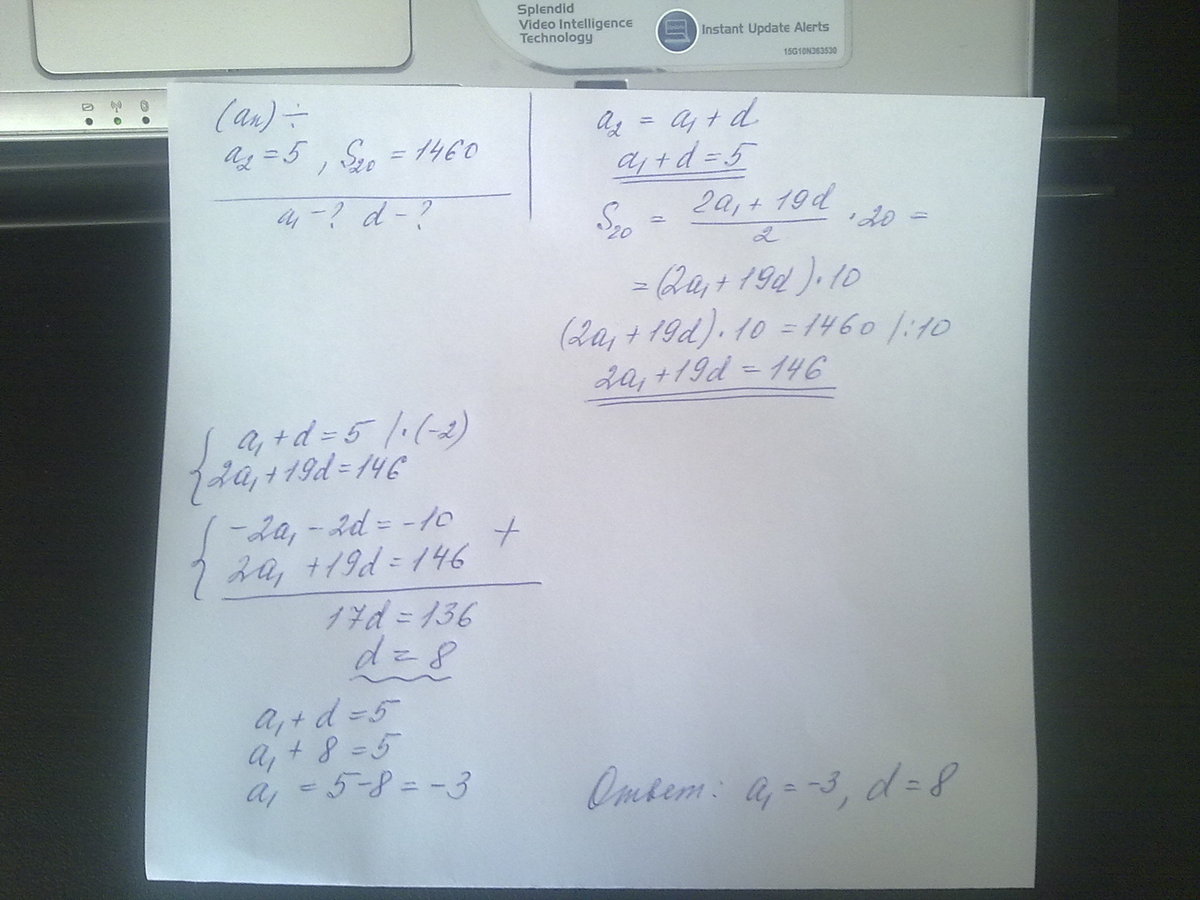 Splendid
Video Intelligence
Technology
Instant Update Alerts
15G10N363530
(an) ÷
a₂ = 5 , S₂₀ = 1460
a₁ - ? d - ?
a₂ = a₁ + d
a₁ + d = 5
S₂₀ = (2a₁ + 19d)/2 · 20 =
= (2a₁ + 19d) · 10
(2a₁ + 19d) · 10 = 1460 / : 10
2a₁ + 19d = 146
{ a₁ + d = 5 / · (-2)
2a₁ + 19d = 146
{ -2a₁ - 2d = -10 +
2a₁ + 19d = 146
17d = 136
d = 8
a₁ + d = 5
a₁ + 8 = 5
a₁ = 5 - 8 = -3
Ответ: a₁ = -3, d = 8